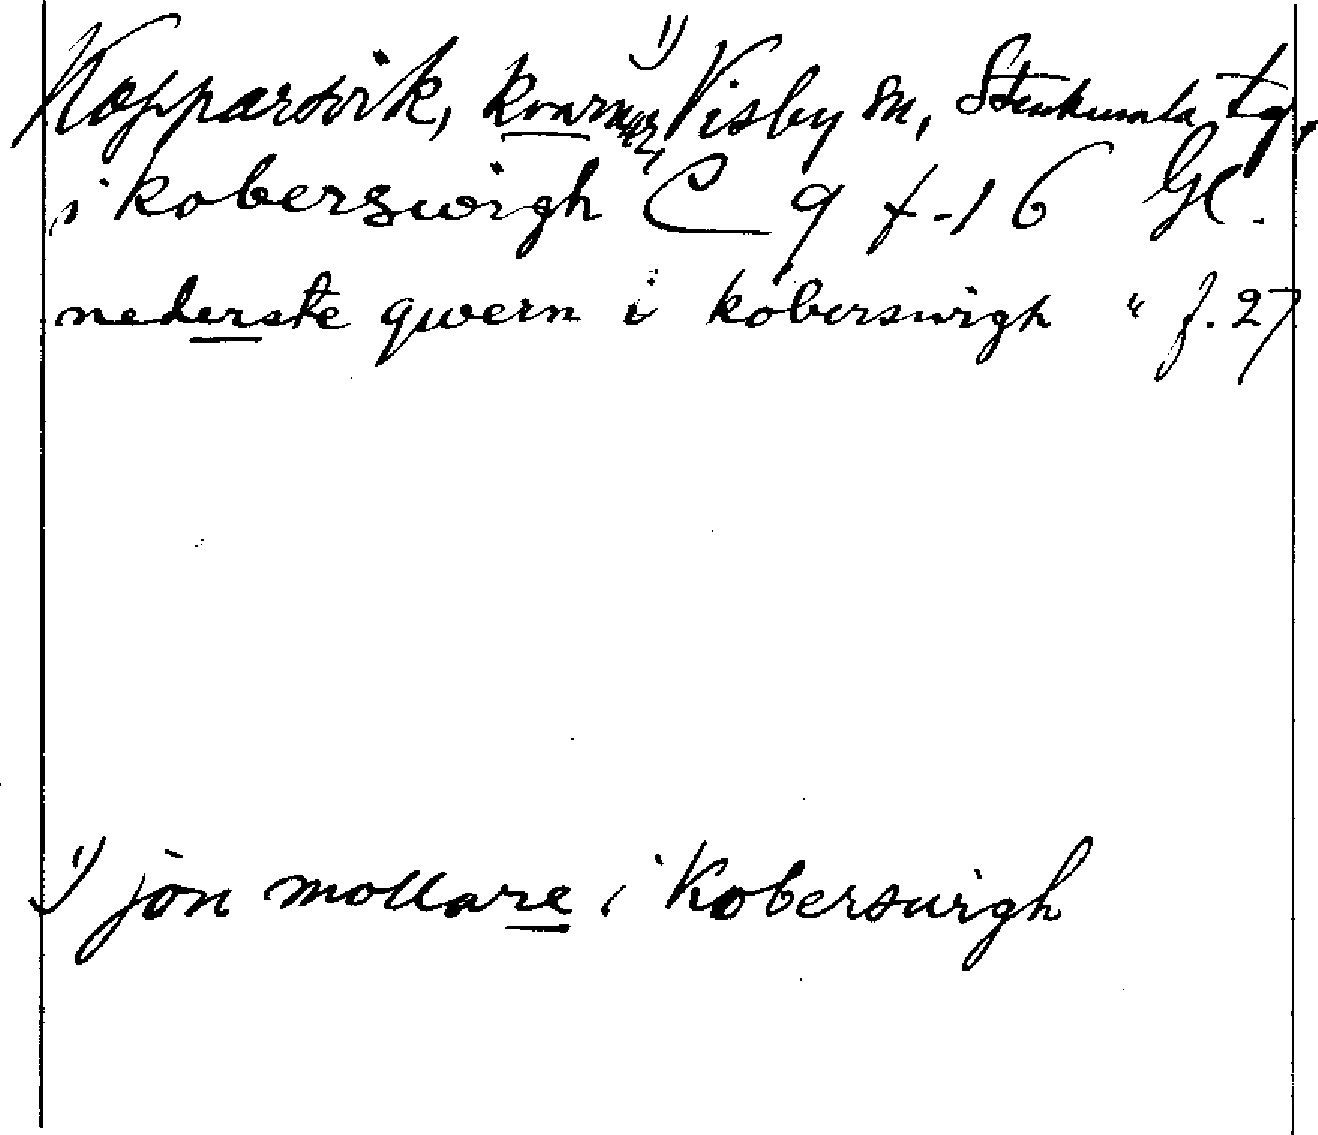 Kopparsvik, kvarnar, 1) Visby sn, Stenkumla tg,
i koberswigh C 9 f. 16 Gl.
nederste qwern i koberswigh " f. 27
1) jon mollare i Koberswigh